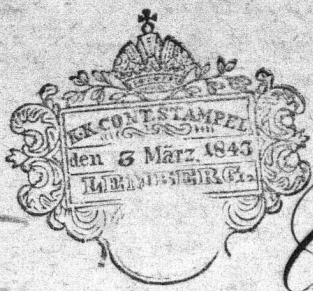 K.K. CONT. STAMPEL
den 3 März, 1843
LEMBERG.